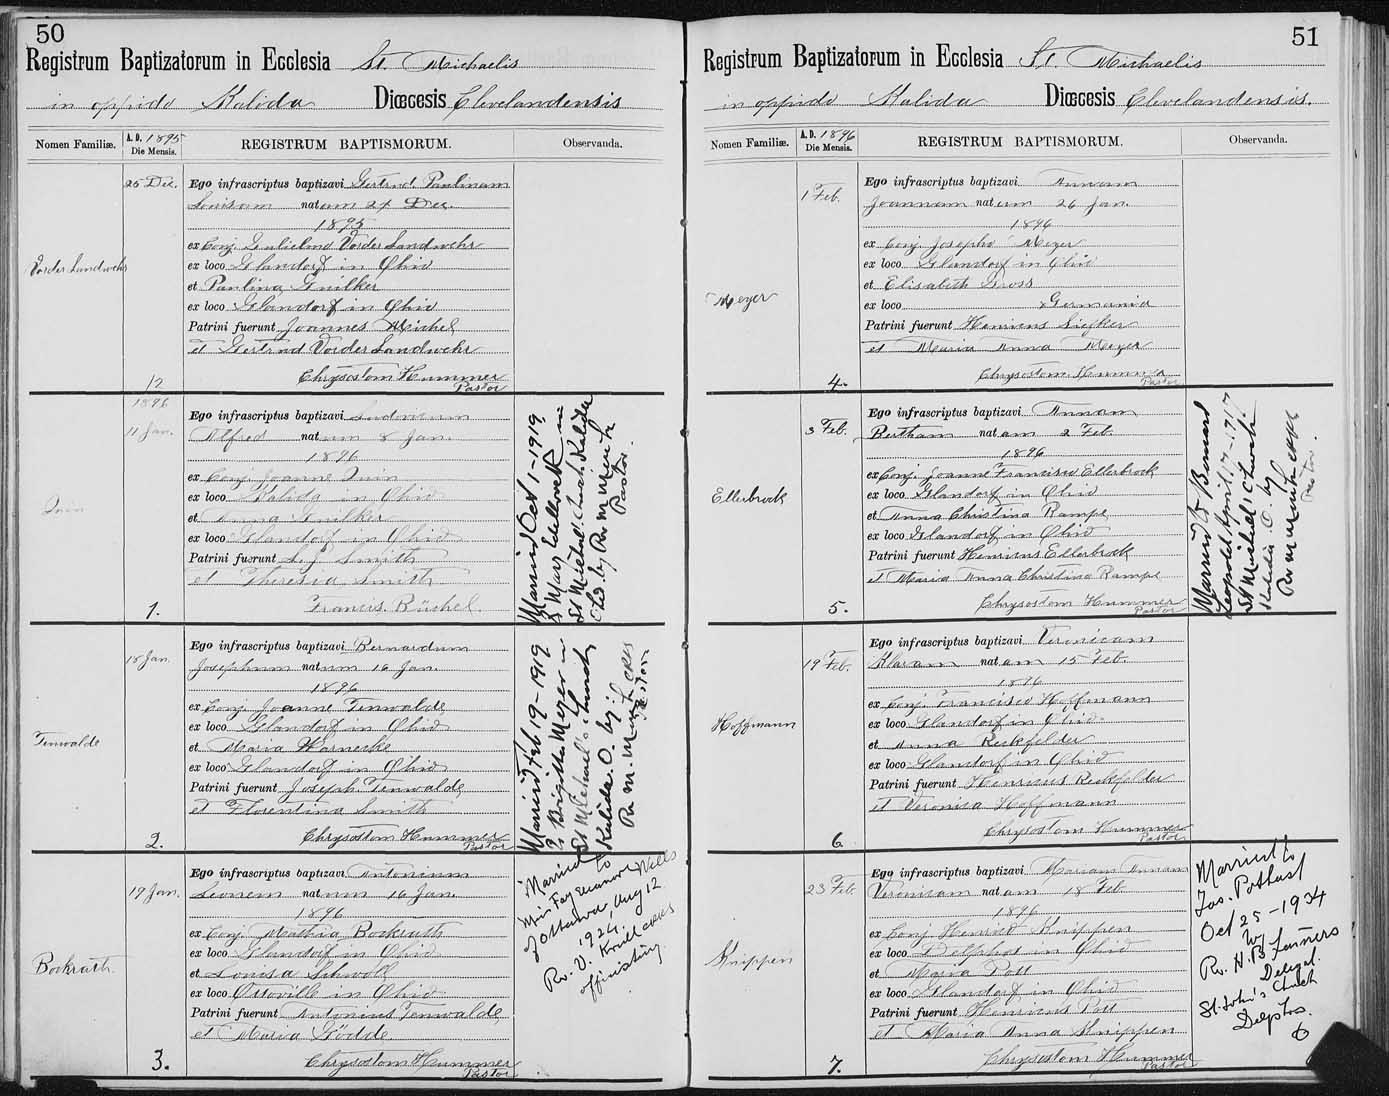 50
Registrum Baptizatorum in Ecclesia St. Michaelis
in oppido Kalida Diœcesis Clevelandensis
Nomen Familiæ. A. D. 1895 Die Mensis. REGISTRUM BAPTISMORUM. Observanda.
25 Dec. Ego infrascriptus baptizavi Gertrud. Paulinam
Louisam natam 24 Dec.
1895
ex Conj. Gulielmo Vorder Landwehr
ex loco Glandorf in Ohio
Vorder Landwehr
et Paulina Guilker
ex loco Glandorf in Ohio
Patrini fuerunt Joannes Michel
et Gertrud Vorder Landwehr
12 Chrysostom Hummer
Pastor
1896
11 Jan. Ego infrascriptus baptizavi Ludovicum
Alfred natum 8 Jan.
1896
ex Conj. Joanne
ex loco Kalida in Ohio
et Anna Guilker
ex loco Glandorf in Ohio
Patrini fuerunt Smith
et Theresia Smith
1. Francis. Büchel.
Married Oct 1-1919
to Mary
St Michael's Church Kalida
Pastor
18 Jan. Ego infrascriptus baptizavi Bernardum
Josephum natum 16 Jan.
1896
ex Conj. Joanne Tenwalde
ex loco Glandorf in Ohio
Tenwalde
et Maria Warnecke
ex loco Glandorf in Ohio
Patrini fuerunt Joseph Tenwalde
et Florentina Smith
2. Chrysostom Hummer
Pastor
Married Feb 19-1919
to Meyer in
St Michael's Church
Kalida. O. by:
Pastor
19 Jan. Ego infrascriptus baptizavi Antonium
Leonem natum 16 Jan.
1896
ex Conj. Mathia Bockrath
ex loco Glandorf in Ohio
Bockrath.
et Louisa Schroll
ex loco Ottoville in Ohio
Patrini fuerunt Antonius Tenwalde
et Maria Rödde
3. Chrysostom Hummer
Pastor
Married to
Miss Fay Wells
of Ottawa, Aug 12
1924,
Rev. V. Krill CPPS
officiating.
51
Registrum Baptizatorum in Ecclesia St. Michaelis
in oppido Kalida Diœcesis Clevelandensis.
Nomen Familiæ. A. D. 1896 Die Mensis. REGISTRUM BAPTISMORUM. Observanda.
1 Feb. Ego infrascriptus baptizavi Annam
Joannam natam 26 Jan.
1896
ex Conj. Josepho Meyer
ex loco Glandorf in Ohio
et Elisabeth Gross
Meyer
ex loco Germania
Patrini fuerunt Henricus Siefker
et Maria Anna Meyer
4. Chrysostom Hummer
Pastor
3 Feb. Ego infrascriptus baptizavi Annam
Bertham natam 2 Feb.
1896
ex Conj. Joanne Francisco Ellerbrock
Ellerbrock
ex loco Glandorf in Ohio
et Anna Christina Rampe
ex loco Glandorf in Ohio
Patrini fuerunt Henricus Ellerbrock
et Maria Anna Christina Rampe
5. Chrysostom Hummer
Pastor
Married to Bernard
Leopold April 17-1917
St Michael's Church
Kalida. O. by
Pastor.
19 Feb. Ego infrascriptus baptizavi Veronicam
Klaram natam 15 Feb.
1896
ex Conj. Francisco Hoffmann
ex loco Glandorf in Ohio
Hoffmann
et Anna Reckfelder
ex loco Glandorf in Ohio
Patrini fuerunt Henricus Reckfelder
et Veronica Hoffmann
6 Chrysostom Hummer
Pastor
23 Feb. Ego infrascriptus baptizavi Mariam Annam
Veronicam natam 18 Feb.
1896
ex Conj. Henrico Knippen
ex loco Delphos in Ohio
Knippen
et Maria Pott
ex loco Glandorf in Ohio
Patrini fuerunt Henricus Pott
et Maria Anna Knippen
7. Chrysostom Hummer
Pastor
Married to
Jos. Pothast
Oct 25-1934
by
Rev. H. B.
Delegat.
St. John's Church
Delphos.
O